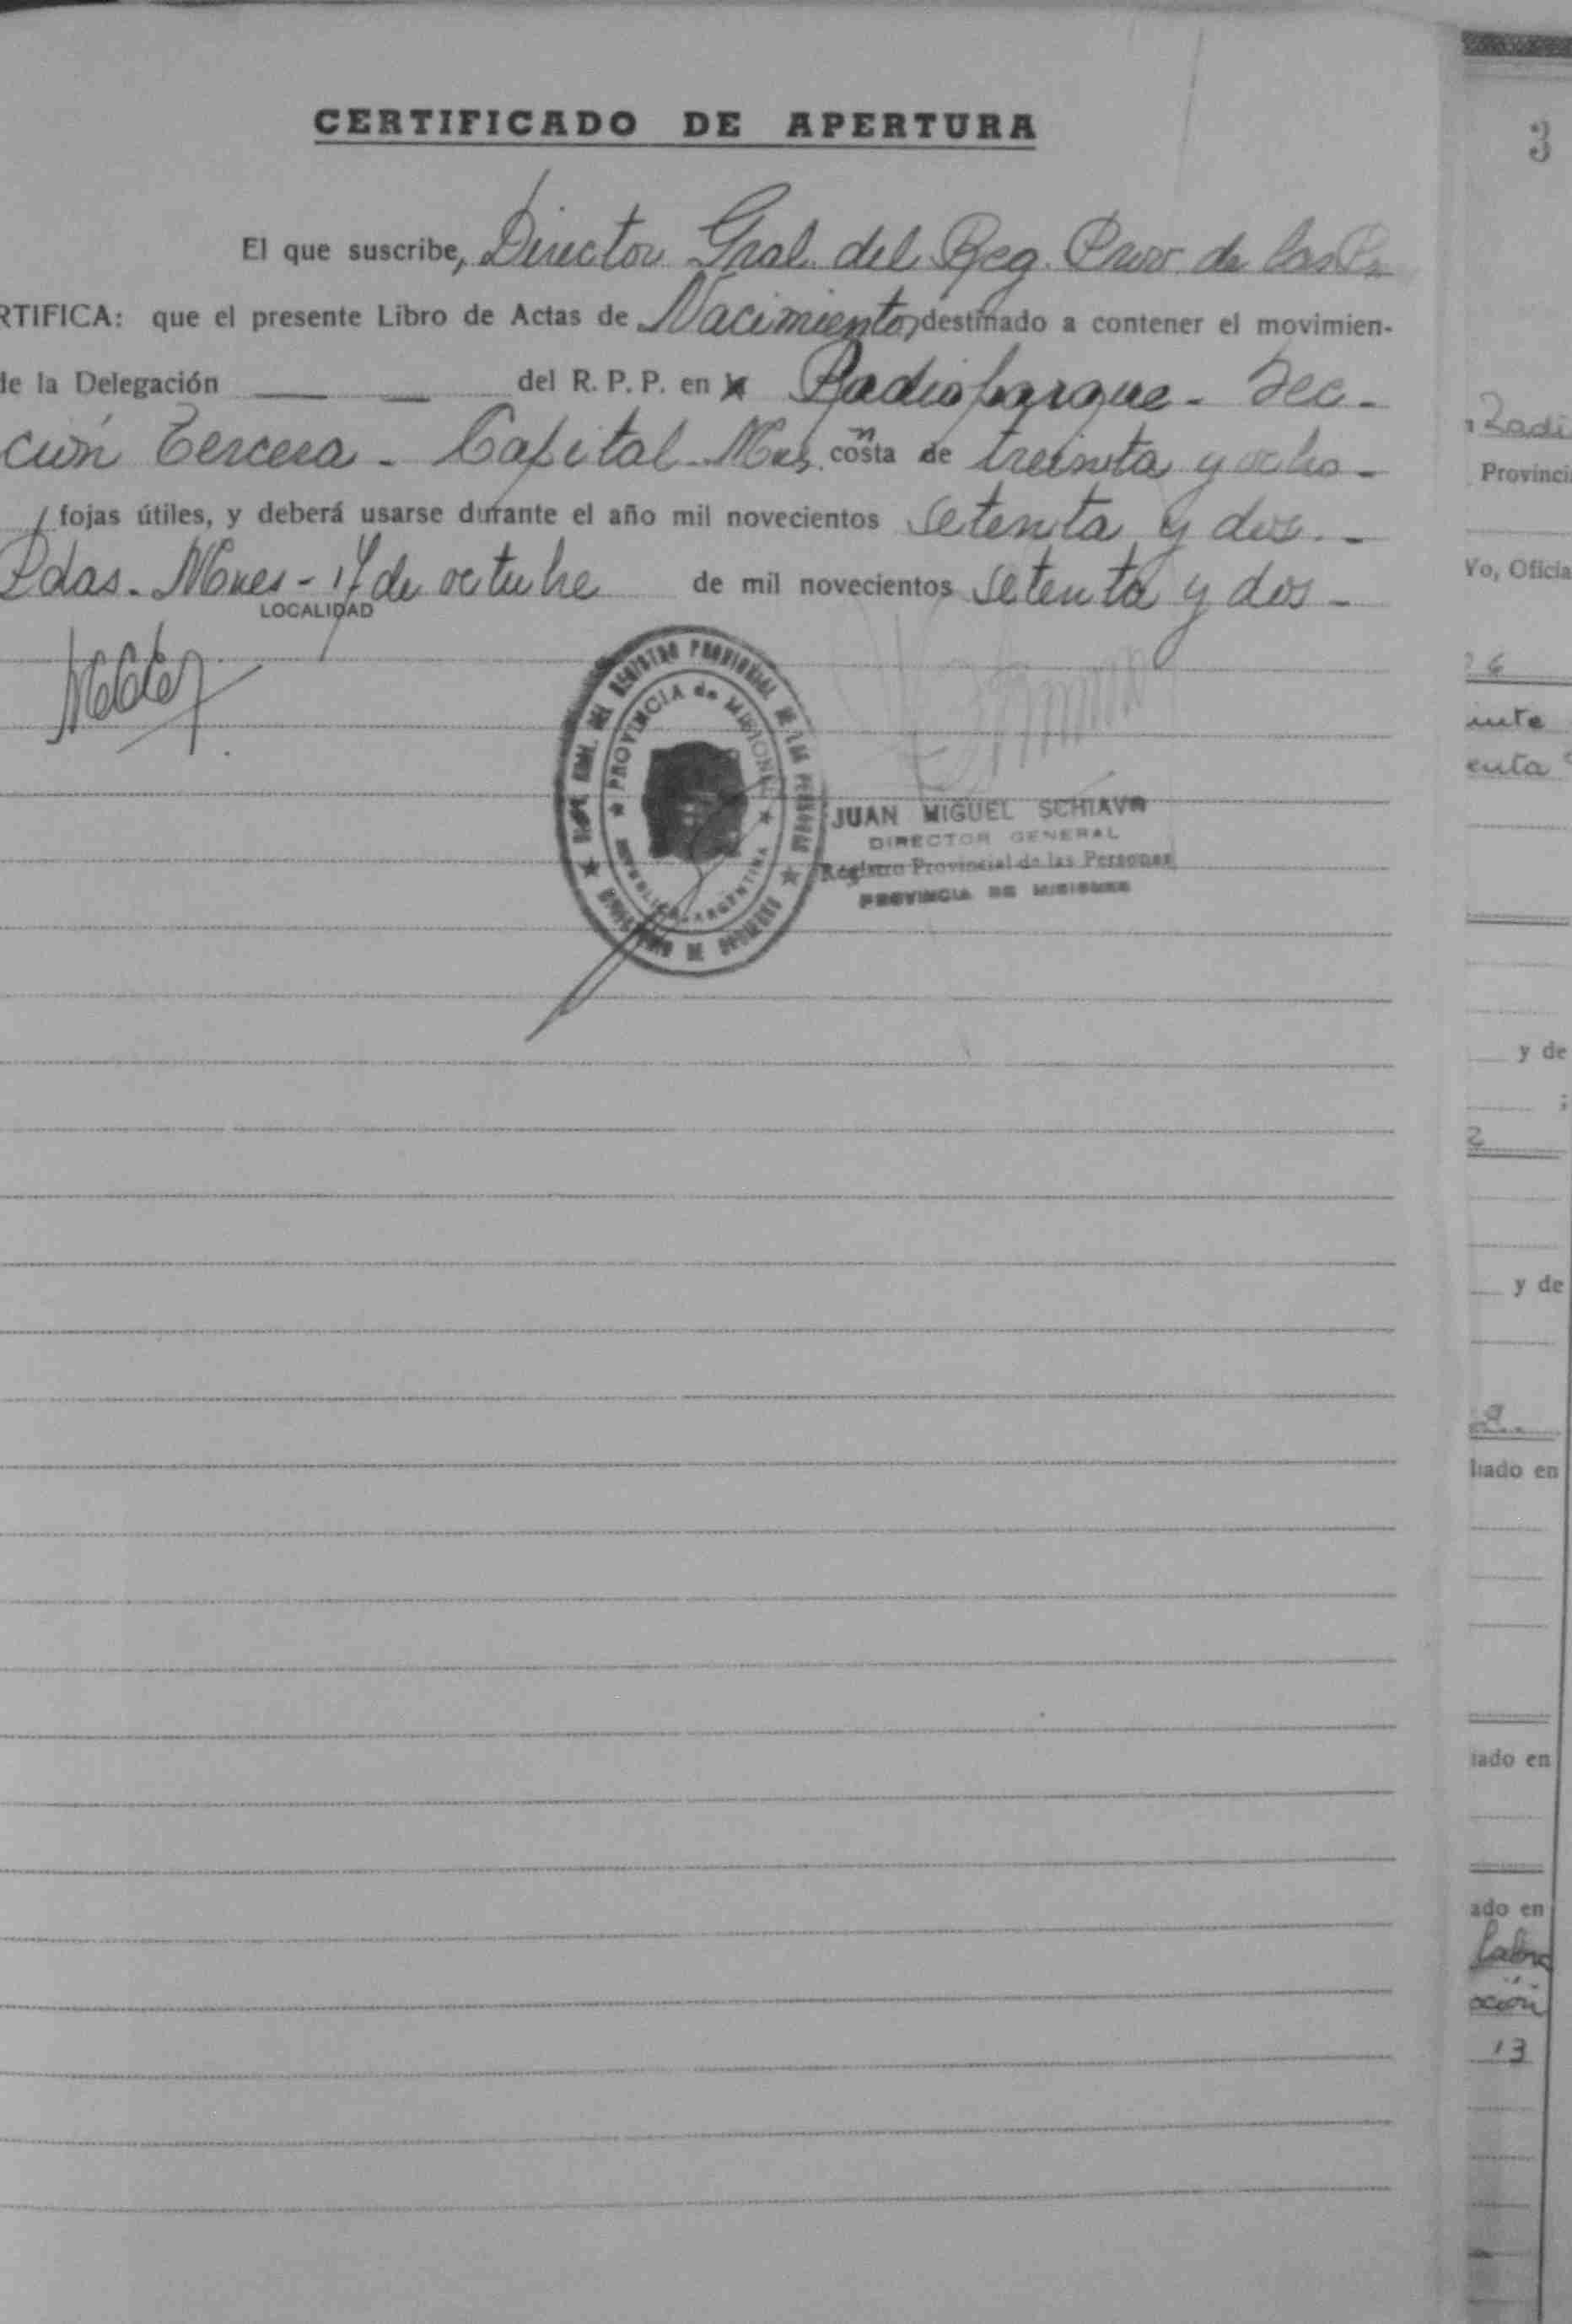 CERTIFICADO DE APERTURA
El que suscribe, Director Gral. del Reg. Prov de las
RTIFICA: que el presente Libro de Actas de Nacimiento, destinado a contener el movimien-
de la Delegación del R. P. P. en Radioparque - Sec-
ción Tercera - Capital - Mnes. consta de treinta y ocho -
fojas útiles, y deberá usarse durante el año mil novecientos setenta y dos. -
Pdas. Mnes - 17 de octubre de mil novecientos setenta y dos -
LOCALIDAD
DEL REGISTRO PROVINCIAL DE LAS PERSONAS
PROVINCIA de MISIONES
REPUBLICA ARGENTINA
MINISTERIO DE GOBIERNO
JUAN MIGUEL SCHIAVO
DIRECTOR GENERAL
Registro Provincial de las Personas
PROVINCIA DE MISIONES
3
Radi
Provinci
Yo, Oficia
6
inte
enta
y de
2
y de
2.
liado en
iado en
ado en
Labra
oción
13